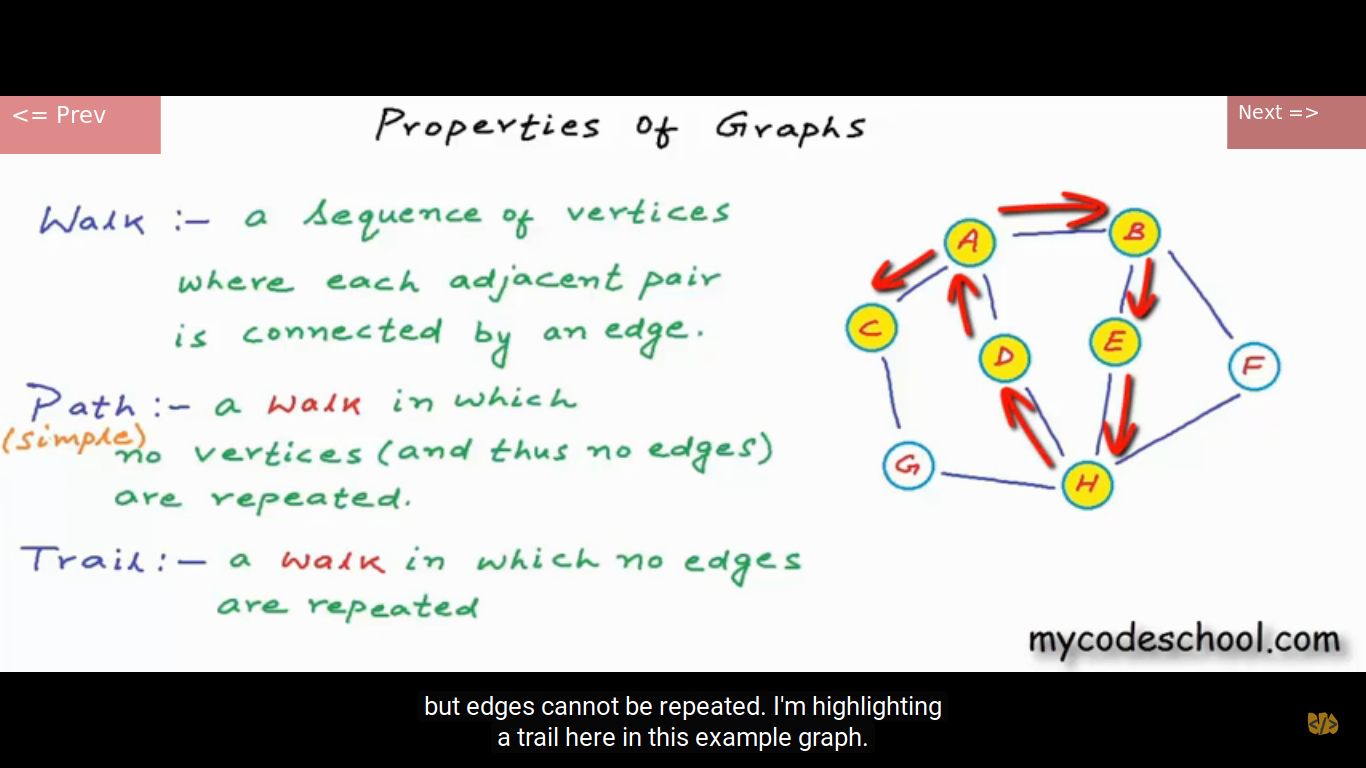 <= Prev
Properties of Graphs
Next =>
Walk :- a sequence of vertices
where each adjacent pair
is connected by an edge.
Path :- a walk in which
(simple)
no vertices (and thus no edges)
are repeated.
Trail :- a walk in which no edges
are repeated
A
B
C
D
E
F
G
H
mycodeschool.com
but edges cannot be repeated. I'm highlighting
a trail here in this example graph.